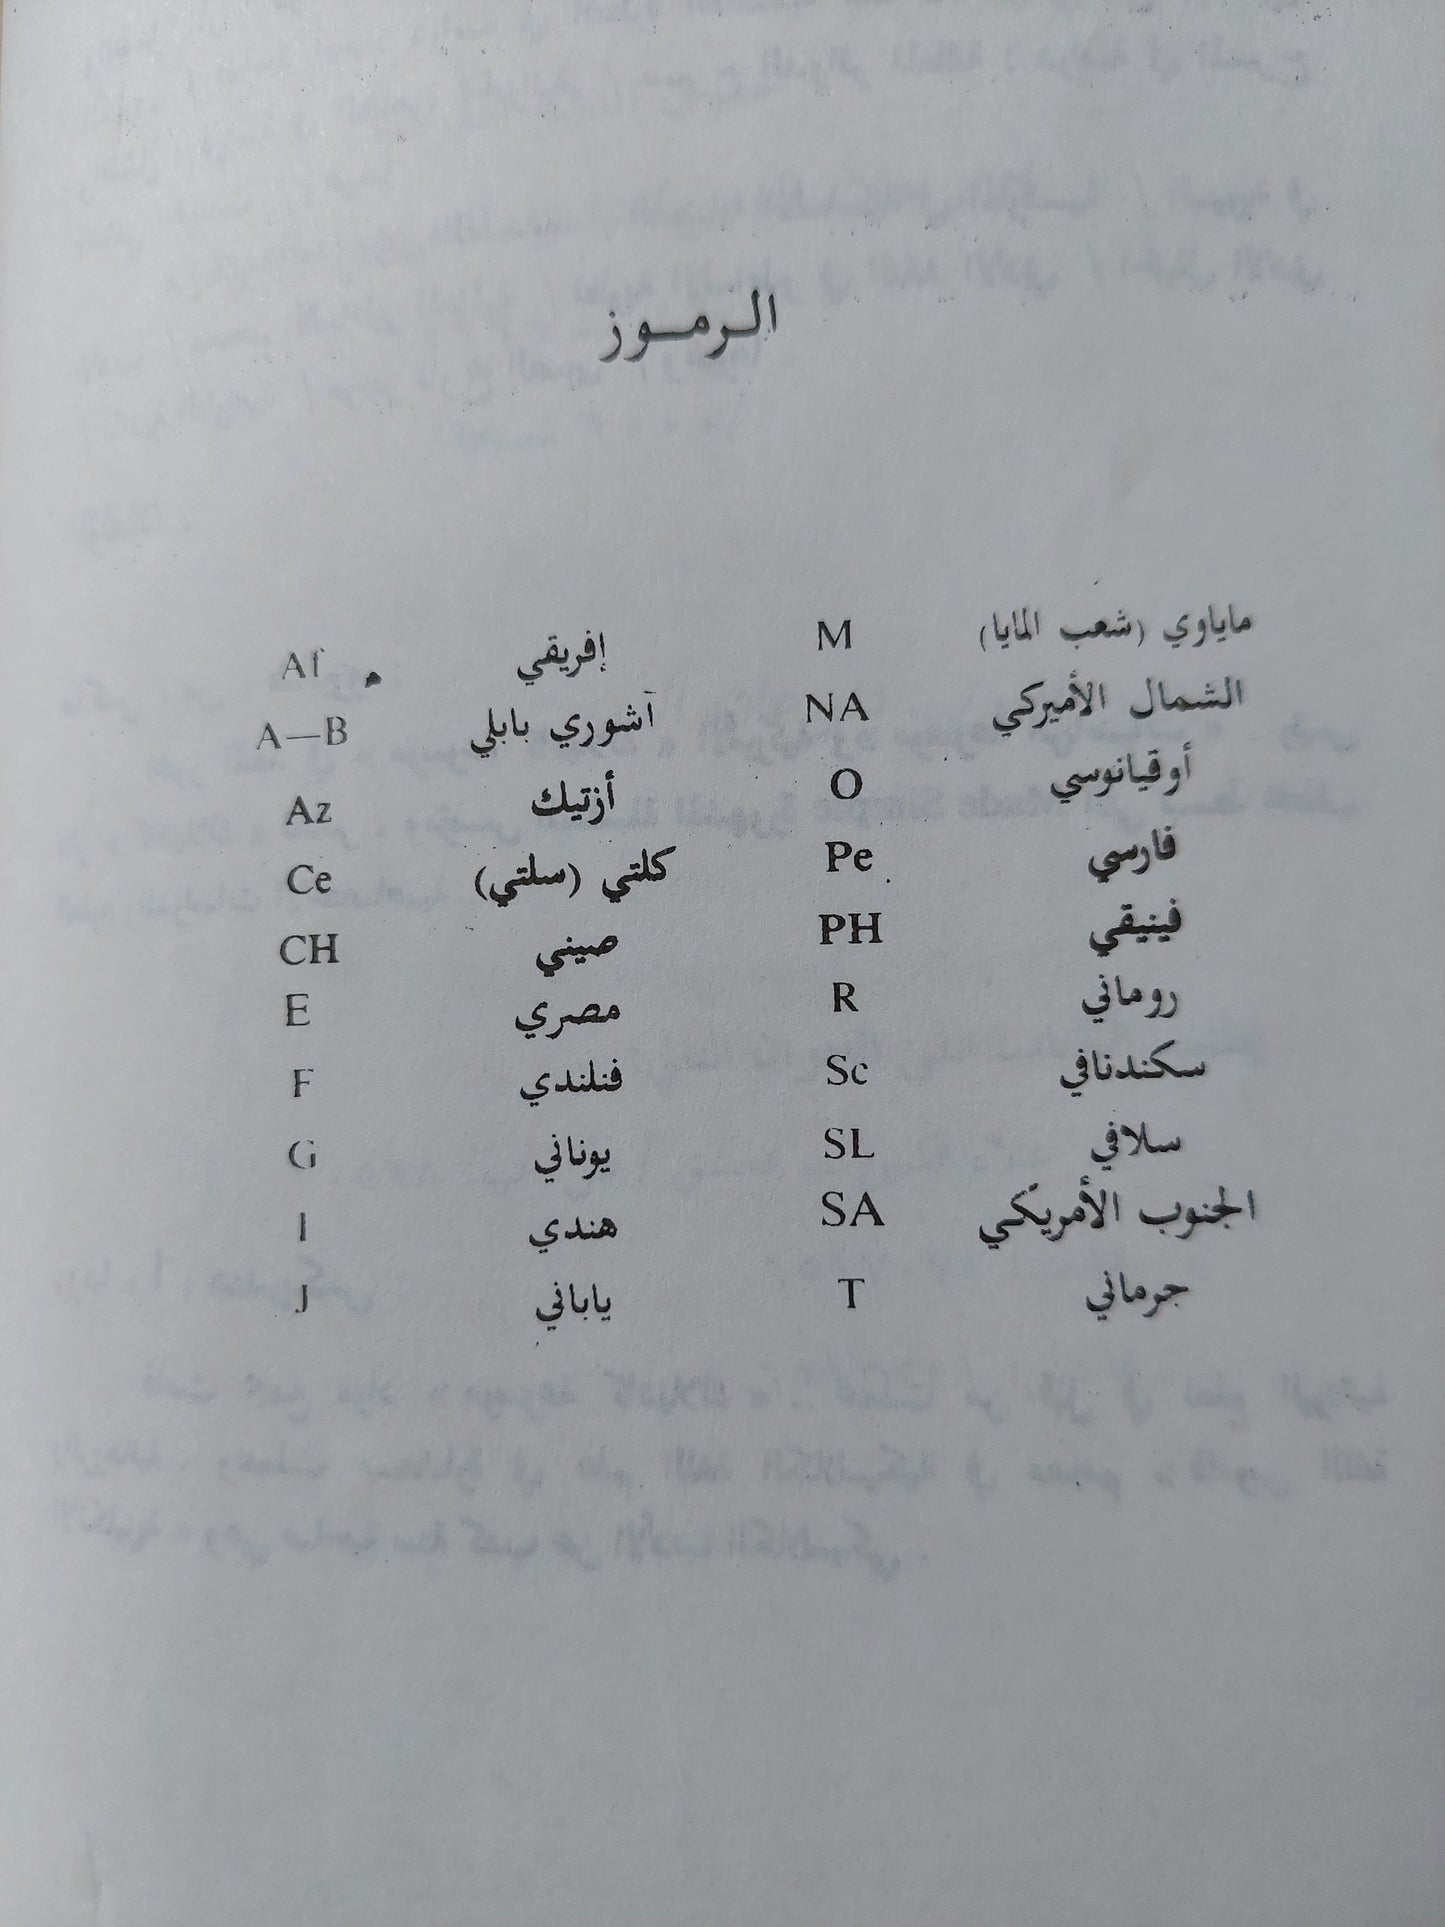 الرموز
ماياوي (شعب المايا) M
الشمال الأميركي NA
أوقيانوسي O
فارسي Pe
فينيقي PH
روماني R
سكندنافي Sc
سلافي SL
الجنوب الأمريكي SA
جرماني T
إفريقي Af
آشوري بابلي A—B
أزتيك Az
كلتي (سلتي) Ce
صيني CH
مصري E
فنلندي F
يوناني G
هندي I
ياباني J